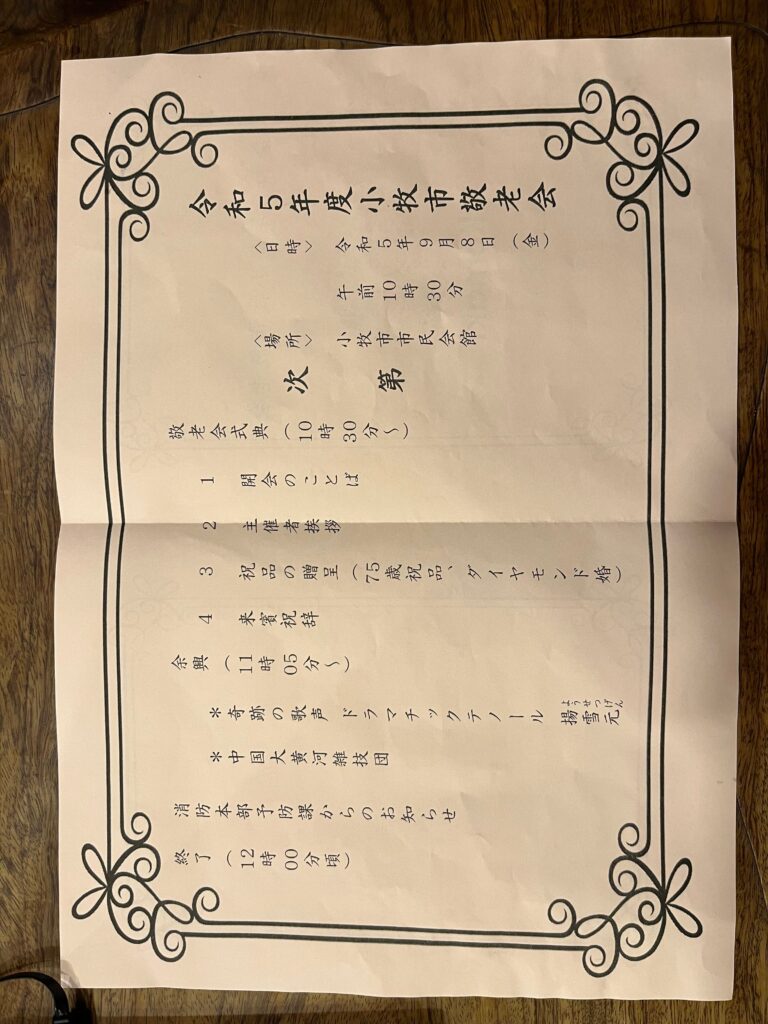 令和5年度小牧市敬老会
〈日時〉 令和5年9月8日（金）
午前10時30分
〈場所〉 小牧市市民会館
次 第
敬老会式典（10時30分～）
1 開会のことば
2 主催者挨拶
3 祝品の贈呈（75歳祝品、ダイヤモンド婚）
4 来賓祝辞
余興（11時05分～）
＊奇跡の歌声 ドラマチックテノール 揚雪元
ようせつげん
＊中国大黄河雑技団
消防本部予防課からのお知らせ
終了（12時00分頃）